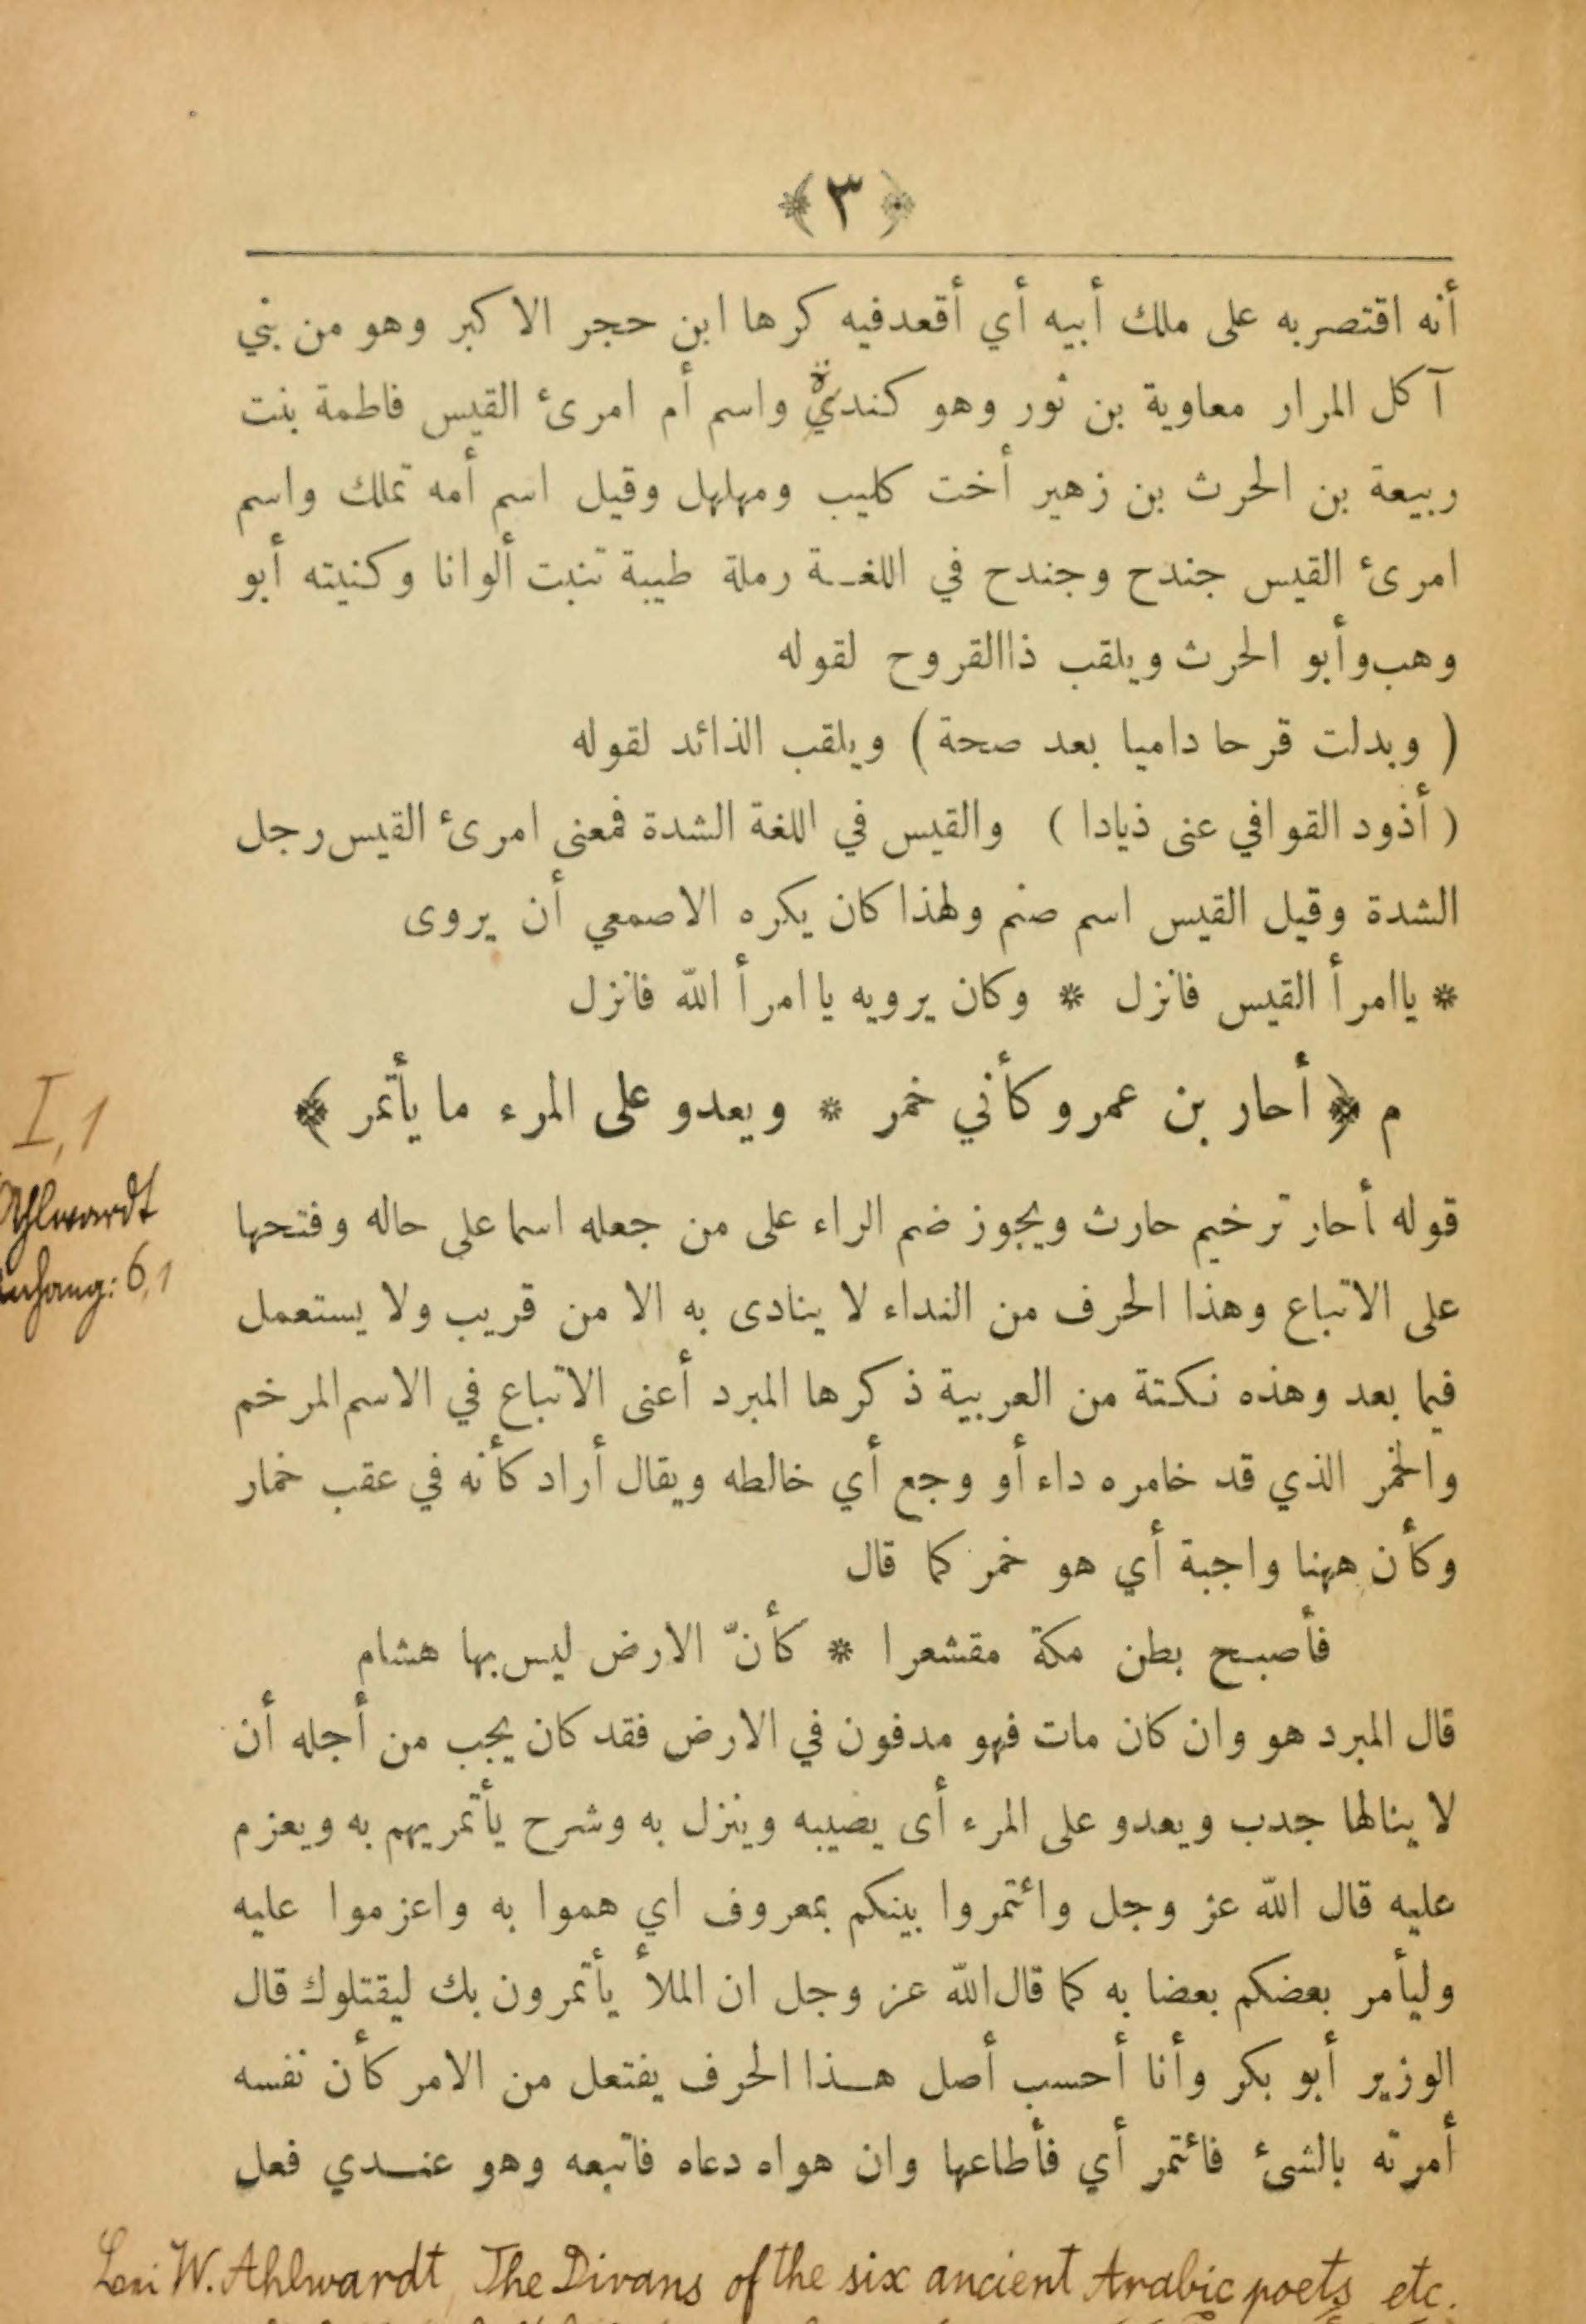 ﴿ ٣ ﴾
أنه اقتصر به على ملك أبيه أي أقعد فيه كرها ابن حجر الاكبر وهو من بني
آكل المرار معاوية بن ثور وهو كندي واسم أم امرئ القيس فاطمة بنت
ربيعة بن الحرث بن زهير أخت كليب ومهلهل وقيل اسم أمه تملك واسم
امرئ القيس جندح وجندح في اللغة رملة طيبة تنبت ألوانا وكنيته أبو
وهب وأبو الحرث ويلقب ذاالقروح لقوله
( وبدلت قرحا داميا بعد صحة ) ويلقب الذائد لقوله
( أذود القوافي عنى ذيادا ) والقيس في اللغة الشدة فمعنى امرئ القيس رجل
الشدة وقيل القيس اسم صنم ولهذا كان يكره الاصمعي أن يروى
* ياامرأ القيس فانزل * وكان يرويه ياامرأ الله فانزل
م ﴿ أحار بن عمرو كأني خمر * ويعدو على المرء ما يأتمر ﴾
I, 1
Ahlwardt
قوله أحار ترخيم حارث ويجوز ضم الراء على من جعله اسما على حاله وفتحها
anhang: 6,1
على الاتباع وهذا الحرف من النداء لا ينادى به الا من قريب ولا يستعمل
فيما بعد وهذه نكتة من العربية ذكرها المبرد أعنى الاتباع في الاسم المرخم
والخمر الذي قد خامره داء أو وجع أي خالطه ويقال أراد كأنه في عقب خمار
وكأن ههنا واجبة أي هو خمر كما قال
فأصبح بطن مكة مقشعرا * كأنّ الارض ليس بها هشام
قال المبرد هو وان كان مات فهو مدفون في الارض فقد كان يجب من أجله أن
لا ينالها جدب ويعدو على المرء أى يصيبه وينزل به وشرح يأتمر يهم به ويعزم
عليه قال الله عز وجل وائتمروا بينكم بمعروف اي هموا به واعزموا عليه
وليأمر بعضكم بعضا به كما قال الله عز وجل ان الملأ يأتمرون بك ليقتلوك قال
الوزير أبو بكر وأنا أحسب أصل هذا الحرف يفتعل من الامر كأن نفسه
أمرته بالشئ فائتمر أي فأطاعها وان هواه دعاه فاتبعه وهو عندي فعل
W. Ahlwardt, The Divans of the six ancient Arabic poets etc.